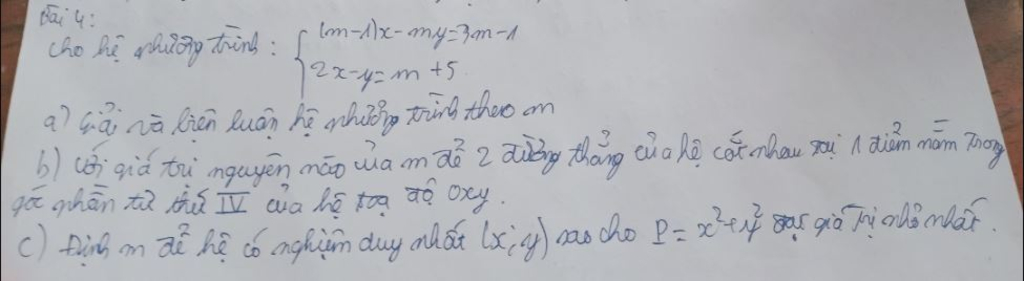 Bài 4:
Cho hệ phương trình: { (m-1)x - my = 3m - 1
2x - y = m + 5
a) Giải và biện luận hệ phương trình theo m
b) Với giá trị nguyên nào của m để 2 đường thẳng của hệ cắt nhau tại 1 điểm nằm trong
góc phần tư thứ IV của hệ toạ độ Oxy.
c) Định m để hệ có nghiệm duy nhất (x; y) sao cho P = x² + y² đạt giá trị nhỏ nhất.